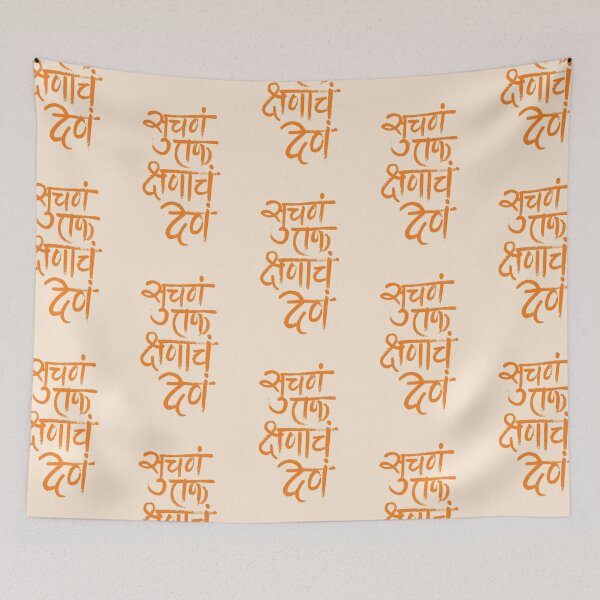 क्षणाचं
देणं
सुचणं
एक
क्षणाचं
देणं
सुचणं
एक
क्षणाचं
देणं
सुचणं
एक
क्षणाचं
देणं
सुचणं
एक
क्षणाचं
देणं
सुचणं
एक
क्षणाचं
क्षणाचं
देणं
सुचणं
एक
क्षणाचं
देणं
सुचणं
एक
क्षणाचं
देणं
सुचणं
एक
क्षणाचं
देणं
सुचणं
एक
क्षणाचं
देणं
सुचणं
एक
क्षणाचं
क्षणाचं
देणं
सुचणं
एक
क्षणाचं
देणं
सुचणं
एक
क्षणाचं
देणं